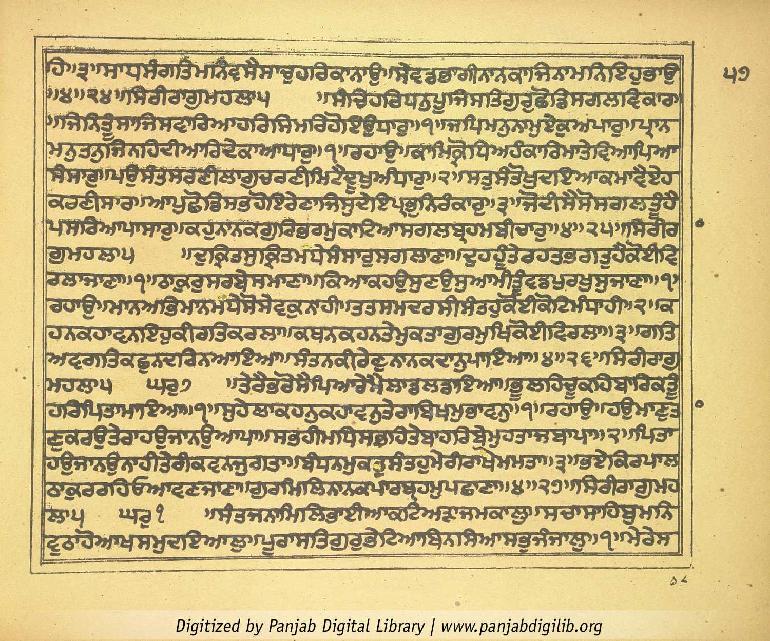 ਹਿ॥੩॥ਸਾਧਸੰਗਤਿਮਨਿਵਸੈਸਾਚੁਹਰਿਕਾਨਾਉ॥ਸੇਵਡਭਾਗੀਨਾਨਕਾਜਿਨਾਮਨਿਇਹੁਭਾਉ ੫੧
॥੪॥੨੪॥ਸਿਰੀਰਾਗੁਮਹਲਾ੫ ॥ਸੰਚਿਹਰਿਧਨੁਪੂਜਿਸਤਿਗੁਰੁਛੋਡਿਸਗਲਵਿਕਾਰ
॥ਜਿਨਿਤੂੰਸਾਜਿਸਵਾਰਿਆਹਰਿਸਿਮਰਿਹੋਇਉਧਾਰੁ॥੧॥ਜਪਿਮਨਨਾਮੁਏਕੁਅਪਾਰੁ॥ਪ੍ਰਾਨ
ਮਨੁਤਨੁਜਿਨਹਿਦੀਆਰਿਦੇਕਾਆਧਾਰੁ॥੧॥ਰਹਾਉ॥ਕਾਮਿਕ੍ਰੋਧਿਅਹੰਕਾਰਿਮਾਤੇਵਿਆਪਿਆ
ਸੰਸਾਰੁ॥ਪਉਸੰਤਸਰਣੀਲਾਗੁਚਰਣੀਮਿਟੈਦੂਖੁਅੰਧਾਰੁ॥੨॥ਸਤੁਸੰਤੋਖੁਦਇਆਕਮਾਵੈਏਹ
ਕਰਣੀਸਾਰ॥ਆਪੁਛੋਡਿਸਭਹੋਇਰੇਣਾਜਿਸੁਦੇਇਪ੍ਰਭੁਨਿਰੰਕਾਰੁ॥੩॥ਜੋਦੀਸੈਸੋਸਗਲਤੂੰਹੈ
ਪਸਰਿਆਪਾਸਾਰੁ॥ਕਹੁਨਾਨਕਗੁਰਿਭਰਮੁਕਾਟਿਆਸਗਲਬ੍ਰਹਮਬੀਚਾਰੁ॥੪॥੨੫॥ਸਿਰੀਰਾ
ਗੁਮਹਲਾ੫ ॥ਦੁਕ੍ਰਿਤਸੁਕ੍ਰਿਤਮਧੇਸੰਸਾਰੁਸਗਲਾਣਾ॥ਦੁਹਹੂੰਤੇਰਹਤਭਗਤੁਹੈਕੋਈਵਿ
ਰਲਾਜਾਣਾ॥੧॥ਠਾਕੁਰੁਸਰਬੇਸਮਾਣਾ॥ਕਿਆਕਹਉਸੁਣਉਸੁਆਮੀਤੂੰਵਡਪੁਰਖੁਸੁਜਾਣਾ॥੧॥
ਰਹਾਉ॥ਮਾਨਅਭਿਮਾਨਮੰਧੇਸੋਸੇਵਕੁਨਾਹੀ॥ਤਤਸਮਦਰਸੀਸੰਤਹੁਕੋਈਕੋਟਿਮੰਧਾਹੀ॥੨॥ਕ
ਹਨਕਹਾਵਨਇਹੁਕੀਰਤਿਕਰਲਾ॥ਕਥਨਕਹਨਤੇਮੁਕਤਾਗੁਰਮੁਖਿਕੋਈਵਿਰਲਾ॥੩॥ਗਤਿ
ਅਵਗਤਿਕਛੁਨਦਰਿਨਆਇਆ॥ਸੰਤਨਕੀਰੇਣੁਨਾਨਕਦਾਨੁਪਾਇਆ॥੪॥੨੬॥ਸਿਰੀਰਾਗੁ
ਮਹਲਾ੫ ਘਰੁ੭ ॥ਤੇਰੈਭਰੋਸੈਪਿਆਰੇਮੈਲਾਡਲਡਾਇਆ॥ਭੂਲਹਿਚੂਕਹਿਬਾਰਿਕਤੂੰ
ਹਰਿਪਿਤਾਮਾਇਆ॥੧॥ਸੁਹੇਲਾਕਹਨੁਕਹਾਵਨੁ॥ਤੇਰਾਬਿਖਮੁਭਾਵਨੁ॥੧॥ਰਹਾਉ॥ਹਉਮਾਣੁਤਾ
ਣੁਕਰਉਤੇਰਾਹਉਜਾਨਉਆਪਾ॥ਸਭਹੀਮਧਿਸਭਹਿਤੇਬਾਹਰਿਬੇਮੁਹਤਾਜਬਾਪਾ॥੨॥ਪਿਤਾ
ਹਉਜਾਨਉਨਾਹੀਤੇਰੀਕਵਨਜੁਗਤਾ॥ਬੰਧਨਮੁਕਤੁਸੰਤਹੁਮੇਰੀਰਾਖੈਮਮਤਾ॥੩॥ਭਏਕਿਰਪਾਲ
ਠਾਕੁਰਰਹਿਓਆਵਣਜਾਣਾ॥ਗੁਰਮਿਲਿਨਾਨਕਪਾਰਬ੍ਰਹਮੁਪਛਾਣਾ॥੪॥੨੭॥ਸਿਰੀਰਾਗੁਮਹ
ਲਾ੫ ਘਰੁ੧ ॥ਸੰਤਜਨਾਮਿਲਿਭਾਈਆਕਟਿਅੜਾਜਮਕਾਲੁ॥ਸਚਾਸਾਹਿਬੁਮਨਿ
ਵੁਠਾਹੋਆਖਸਮੁਦਇਆਲੁ॥ਪੂਰਾਸਤਿਗੁਰੁਭੇਟਿਆਬਿਨਸਿਆਸਭੁਜੰਜਾਲੁ॥੧॥ਮੇਰੇਸ
Digitized by Panjab Digital Library | www.panjabdigilib.org